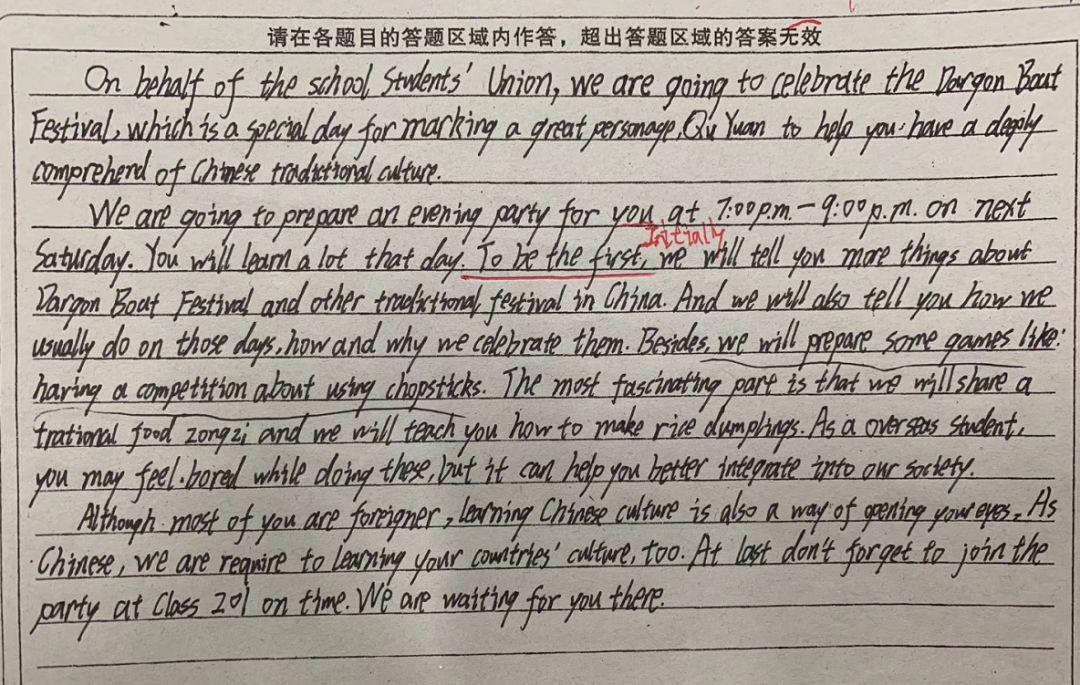 请在各题目的答题区域内作答，超出答题区域的答案无效
On behalf of the school Students' Union, we are going to celebrate the Dargon Boat
Festival, which is a special day for marking a great personage, Qu Yuan to help you have a deeply
comprehend of Chinese tradictional culture.
We are going to prepare an evening party for you at 7:00p.m.-9:00p.m. on next
Initially
Saturday. You will learn a lot that day. To be the first, we will tell you more things about
Dargon Boat Festival and other tradictional festival in China. And we will also tell you how we
usually do on those days, how and why we celebrate them. Besides, we will prepare some games like:
having a competition about using chopsticks. The most fascinating part is that we will share a
trational food zongzi and we will teach you how to make rice dumplings. As a overseas student,
you may feel bored while doing these, but it can help you better integrate into our society.
Although most of you are foreigner, learning Chinese culture is also a way of opening your eyes. As
Chinese, we are require to learning your countries' culture, too. At last don't forget to join the
party at Class 201 on time. We are waiting for you there.